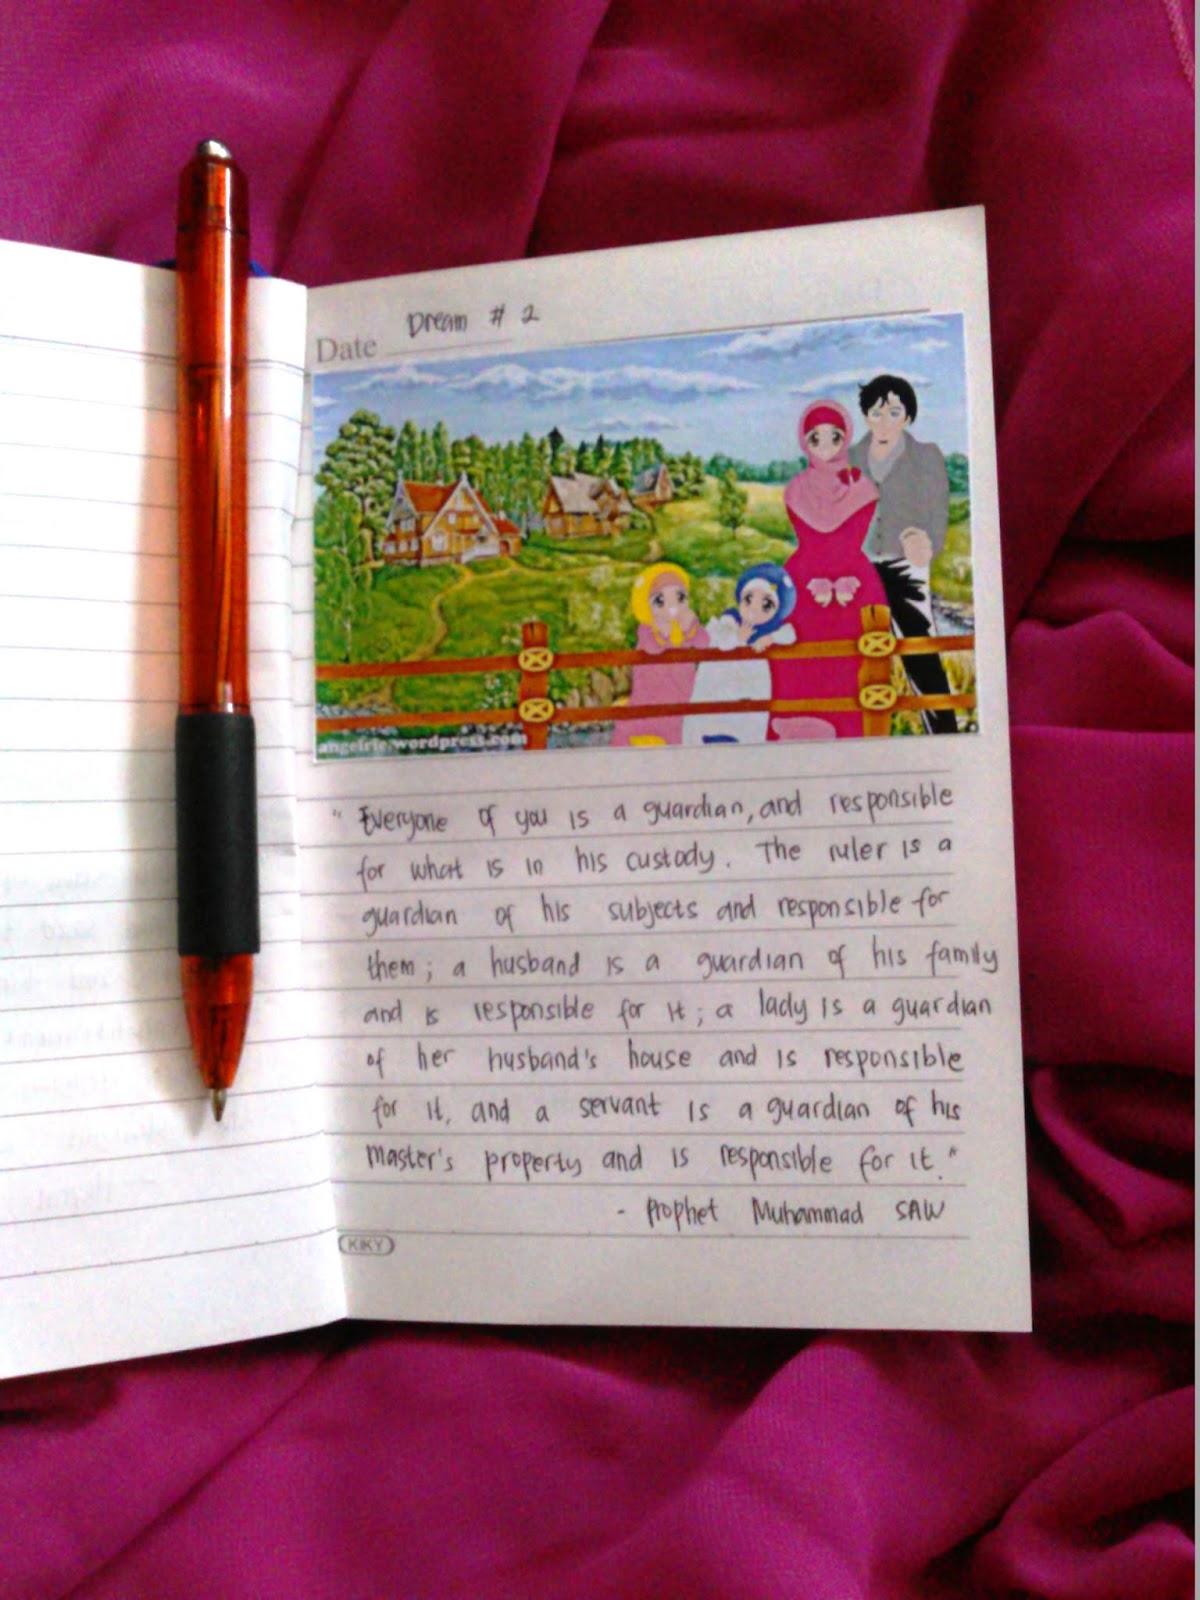 Dream # 2
Date
angefrie.wordpress.com
" Everyone of you is a guardian, and responsible
for what is in his custody. The ruler is a
guardian of his subjects and responsible for
them; a husband is a guardian of his family
and is responsible for it; a lady is a guardian
of her husband's house and is responsible
for it, and a servant is a guardian of his
master's property and is responsible for it."
- Prophet Muhammad SAW
KIKY